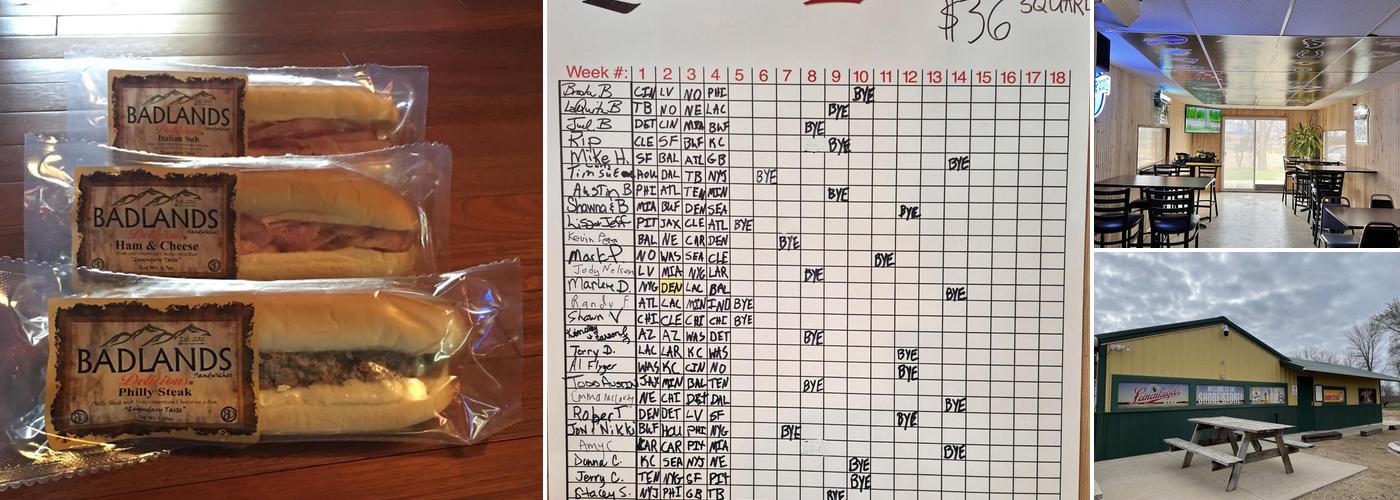 BADLANDS
Delicious
Italian Sub
EST. 2002
BADLANDS
Delicious Sandwiches
Ham & Cheese
"Legendary Taste"
Est. 2002
BADLANDS
Delicious Sandwiches
Philly Steak
Philly Steak with Swiss American Cheese on a Bun.
"Legendary Taste"
$36 SQUARE
Week #: 1 2 3 4 5 6 7 8 9 10 11 12 13 14 15 16 17 18
Brooke B CIN LV NO PHI BYE
B TB NO NE LAC BYE
Juel B DET CIN MIA BUF BYE
Rip CLE SF BUF KC BYE
Mike H. SF BAL ATL GB BYE
Tim Sue HOU DAL TB NYJ BYE
Austin B PHI ATL TEN MIN BYE
Shawna & B MIA BUF DEN SEA BYE
Lisa Jeff PIT JAX CLE ATL BYE
Kevin BAL NE CAR DEN BYE
Mark P NO WAS SEA CLE BYE
Jody Nelson LV MIA NYG LAR BYE
Marlene D. NYG DEN LAC BAL BYE
Randy F ATL LAC MIN IND BYE
Shawn V CHI CLE CHI CHI BYE
AZ AZ WAS DET BYE
Terry D. LAC LAR KC WAS BYE
Al Flyer WAS KC CIN NO BYE
Todd Austin JAX MIN BAL TEN BYE
Emma NE CHI DET DAL BYE
Robert DEN DET LV SF BYE
Jon & Nikki BUF HOU PHI NYG BYE
Amy C CAR CAR PIT MIA BYE
Donna C. KC SEA NYJ NE BYE
Jerry C. TEN NYG SF PIT BYE
Stacey S. NYJ PHI GB TB BYE
Leinenkugel's
WELCOME TO THE
SHORE STORE